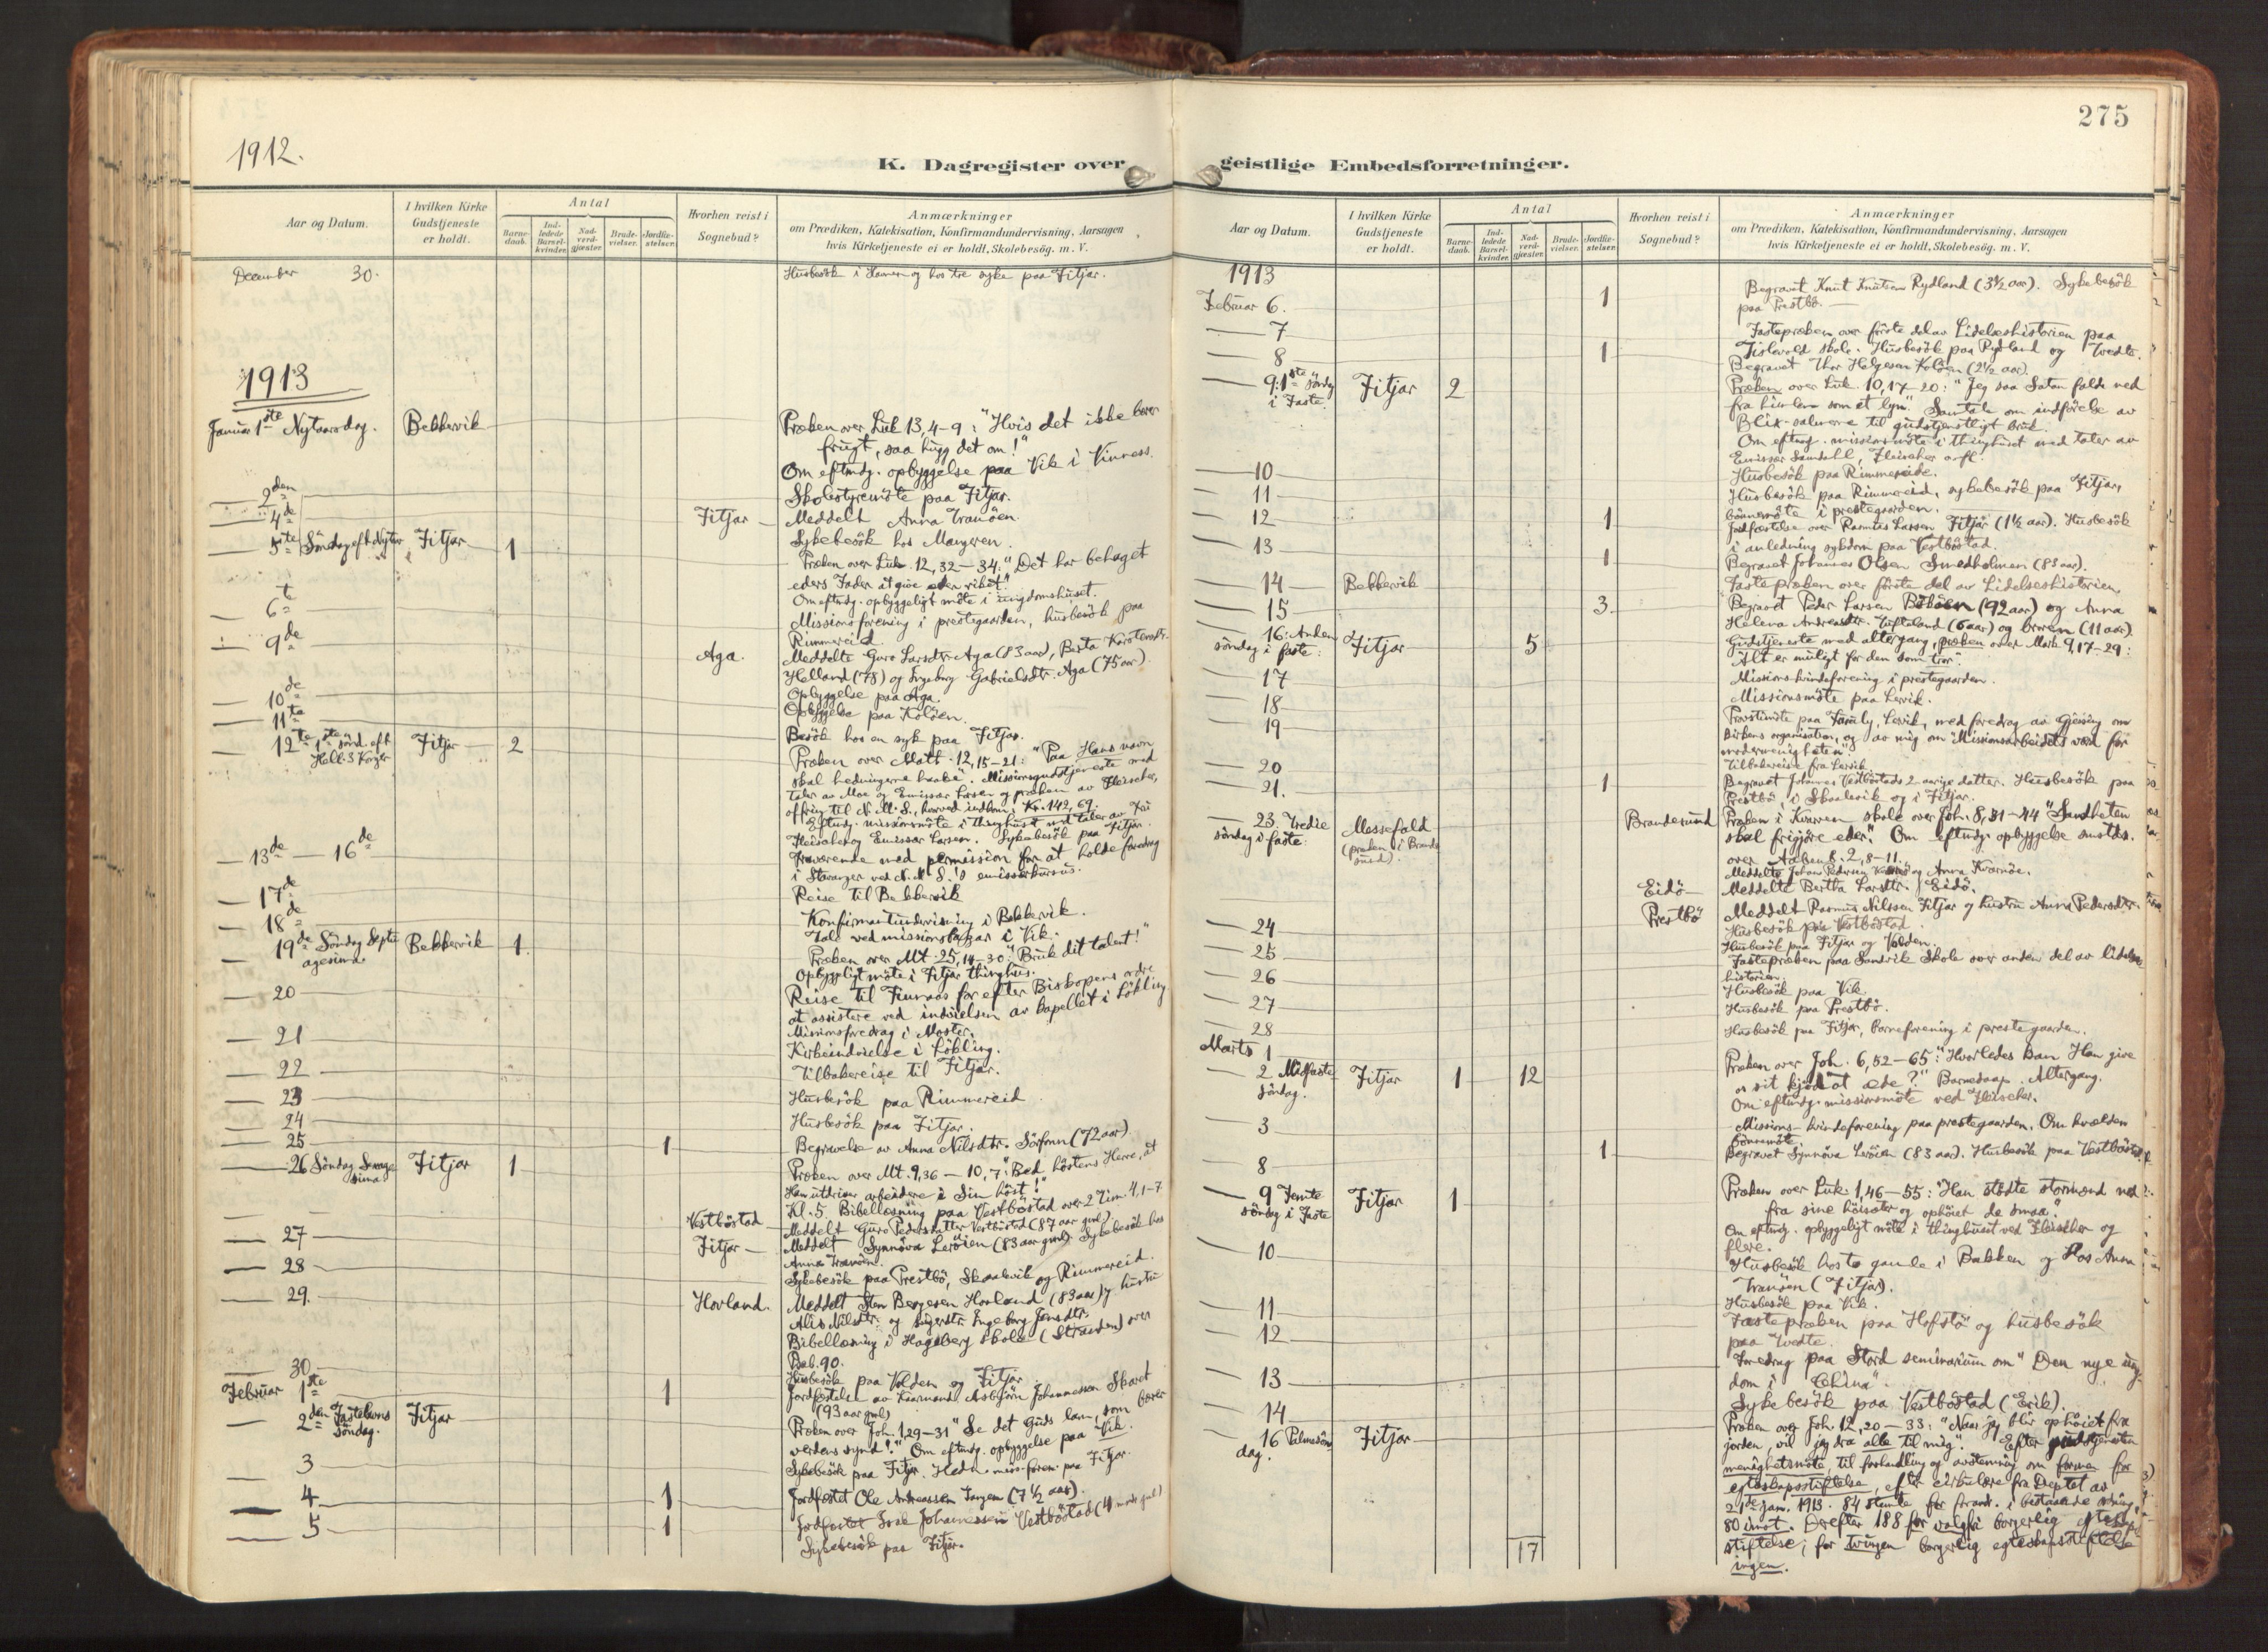 1912.
K. Dagregister over
Aar og Datum.
I hvilken Kirke
Gudstjeneste
er holdt.
Antal
Barne-
daab.
Ind-
ledede
Barsel-
kvinder.
Nad-
verd-
gjæster.
Brude-
vielser.
Jordfæ-
stelser.
Hvorhen reist i
Sognebud?
Anmærkninger
om Prædiken, Katekisation, Konfirmandundervisning, Aarsagen
hvis Kirketjeneste ei er holdt, Skolebesøg. m. V.
December 30. Husbesök i Havnen og hos tre syke paa Fitjar.
1913
Januar 1ste Nytaarsdag. Bekkervik Præken over Luk 13, 4-9: "Hvis det ikke bærer
frugt, saa hugg det om!"
Om eftmdg. opbyggelse paa Vik i
2den Skolestyremöte paa Fitjar.
4de Fitjar Meddelt Anna Tranöen.
Sykebesök hos
5te Söndag eft Nytaar Fitjar 1 Præken over Luk. 12, 32-34: "Det har behaget
eders Fader at give eder riket."
Om eftmdg. opbyggeligt möte i ungdomshuset.
6te Missionsforening i prestegaarden, husbesök paa
Rimmereid
9de Aga. Meddelte Guro Larsdtr. Aga (83 aar), Berta Karstensdtr.
Helland (78) og Ingeborg Gabrielsdtr. Aga (75 aar).
Opbyggelse paa Aga.
10de Opbyggelse paa Kolöen.
11te Besök hos en syk paa Fitjar.
12te 1ste sönd. eft Fitjar 2 Præken over Matt. 12, 15-21: "Paa Hans navn
Hell. 3 Konger skal hedningerne haabe". Missionsgudstjeneste med
taler av Moe og Emissær Larsen og præken av Fleischer,
ofring til N. M. S., hvorved indkom Kr. 142,69.
Eftmdg. missionsmöte i thinghuset med taler av Fru
Fleischer og Emissær Larsen. Sykebesök paa Fitjar.
13de — 16de Fraværende med permission for at holde foredrag
i Stavanger ved N. M. S.'s emissærkursus.
17de Reise til Bekkervik
18de Konfirmantundervisning i Bekkervik.
Tale ved missionsbasar i Vik.
19de Söndag Septu Bekkervik 1 Præken over Mt. 25, 14-30: "Bruk dit talent!"
agesima. Opbyggeligt möte i Fitjar thinghus.
20 Reise til Finnaas for efter Biskopens ordre
at assistere ved indvielsen av kapellet i Lökling
Missionsforedrag i Moster.
21 Kirkeindvielse i Lökling.
22 Tilbakereise til Fitjar.
23 Husbesök paa Rimmereid
24 Husbesök paa Fitjar.
25 1 Begravelse av Anna Nilsdtr. Sörfonn (72 aar)
26 Söndag Sexage Fitjar 1 Præken over Mt. 9,36 — 10,7: "Bed höstens Herre, at
sima Han utdriver arbeidere i Sin höst!"
Kl. 5. Bibellæsning paa Vestböstad over 2 Tim. 4, 1-7
Vestböstad Meddelt Guro Pedersdatter Vestböstad (87 aar gml)
27 Fitjar Meddelt Synnöva Leröien (83 aar gml). Sykebesök hos
Anna Tranöen.
28 Sykebesök paa Prestbö, Skaalevik og Rimmereid.
29. Hovland. Meddelt Sten Børgesen Hovland (83 aar) og hustru
Alis Nilsdtr. og Ingeborg Jensdtr.
Bibellæsning i Hageberg skole (Stranden) over
90.
30 Husbesök paa Volden og Fitjar
Februar 1ste 1 Jordfæstelse av Asbjörn Johannessen Skaret
(93 aar gml)
2den Fastelavns Fitjar Præken over Joh. 1, 29-31 "Se det Guds lam, som bærer
söndag. verdens synd!" Om eftmdg. opbyggelse paa Vik.
3 Sykebesök paa Fitjar. Hedn. miss. foren. paa Fitjar.
4 1 Jordfæstet Ole Andreassen (7 1/2 aar).
5 1 Jordfæstet Johannessen Vestböstad (4 mndr gml)
Sykebesök paa Fitjar.
275
geistlige Embedsforretninger.
Aar og Datum.
I hvilken Kirke
Gudstjeneste
er holdt.
Antal
Barne-
daab.
Ind-
ledede
Barsel-
kvinder.
Nad-
verd-
gjæster.
Brude-
vielser.
Jordfæ-
stelser.
Hvorhen reist i
Sognebud?
Anmærkninger
om Prædiken, Katekisation, Konfirmandundervisning, Aarsagen
hvis Kirketjeneste ei er holdt, Skolebesøg. m. V.
1913
Februar 6. 1 Begravet Knut Knutsen Rydland (3 1/2 aar). Sykebesök
paa Prestbö.
7 Fastepræken over förste del av Lidelseshistorien paa
Fislevold skole. Husbesök paa Rydland og Tvedte.
8 1 Begravet Thor Helgesen Kolöen (2 1/2 aar).
9. 1ste söndag Fitjar 2 Præken over Luk. 10, 17-20: "Jeg saa Satan falde ned
i Faste. fra himlen som et lyn". Samtale om indförelse av
Blix-salmerne til gudstjenstligt bruk.
Om eftmdg. missionsmöte i thinghuset med taler av
Emissær Sandahl, Fleischer o. fl.
10 Husbesök paa Rimmereide.
11 Husbesök paa Rimmereid, sykebesök paa Fitjar,
bönnemöte i prestegaarden.
12 1 Jordfæstelse over Rasmus Larsen Fitjar (1 1/2 aar). Husbesök
i anledning sygdom paa Vestböstad
13 1 Begravet Johannes Olsen Smedholmen (83 aar).
14 Bekkervik Fastepræken over förste del av Lidelseshistorien
15 3 Begravet Peder Larsen (92 aar) og Anna
Helena Andreasdtr. Tufteland (6 aar) og broren (11 aar).
16: Anden Fitjar 5 Gudstjeneste med altergang, præken over Mark 9, 17-29:
söndag i faste: Alt er muligt for den som tror.
17 Missionskvindeforening i prestegaarden.
18 Missionsmöte paa Lervik.
19 Provstimöte paa Family, Lervik, med foredrag av Gjessing om
kirkens organisation, og av mig om "Missionsarbeidets værd for
modermenigheten".
20 Tilbakereise fra Lervik
21. 1 Begravet Johannes Vestböstads 2 aarige datter. Husbesök paa
Prestbö, i Skaalevik og i Fitjar.
23: Tredie Messefald Brandesund Præken i Kvarven skole over Joh. 8, 31-44 "Sandheten
söndag i faste: (præken i Brande skal frigjöre eder". Om eftmdg. opbyggelse smstds.
sund). over Aabenb. 2, 8-11.
Meddelte Johan Pedersen og Anna Kvarnöe.
Eidö Meddelte Bertha Larsdtr. Eidö.
Prestbö Meddelt Rasmus Nilssen Fitjar og hustru Anna Pedersdtr.
24 Husbesök paa Vestböstad
25 Husbesök paa Fitjar og Volden.
26 Fastepræken paa Sandvik Skole over anden del av lidelses
historien.
27 Husbesök paa Vik.
28 Husbesök paa Prestbö.
Marts 1 Husbesök paa Fitjar, barneforening i prestegaarden.
2 Midfaste Fitjar 1 12 Præken over Joh. 6, 52-65: "Hvorledes kan Han give
söndag. os sit kjöd at æde?" Barnedaap. Altergang.
Om eftmdg. missionsmöte ved Fleischer.
3 Missions-kvindeforening paa prestegaarden. Om kvælden
bönnemöte.
8 1 Begravet Synnöva Leröien (83 aar). Husbesök paa Vestböstad
9 Femte Fitjar 1 Præken over Luk. 1, 46-55: "Han stödte stormænd ned
söndag i Faste fra sine höisæter og ophöiet de smaa."
Om eftmdg. opbyggeligt möte i thinghuset ved Fleischer og
flere.
10 Husbesök hos to gamle i Bakken og Hos Anna
Tranöen (Fitjar).
11 Husbesök paa Vik.
12 Fastepræken paa Hofstö og husbesök
paa Tvedte.
13 Foredrag paa Stord seminarium om "Den nye ung-
dom i China".
14 Sykebesök paa Vestböstad (Erik).
16 Palmesön Fitjar Præken over Joh. 12, 20-33: "Naar jeg blir ophöiet fra
dag. jorden, vil jeg dra alle til mig". Efter gudstjenesten
menighetsmöte til forhandling og avstemning om formen for
egteskapsstiftelse, efter cirkulære fra Deptet av
21de jan. 1913. 84 stemte for forandr. i bestaaende ordning,
80 imot. Derefter 188 for valgfri borgerlig egtesk.
stiftelse; for tvungen borgerlig egteskapsstiftelse
ingen.
17